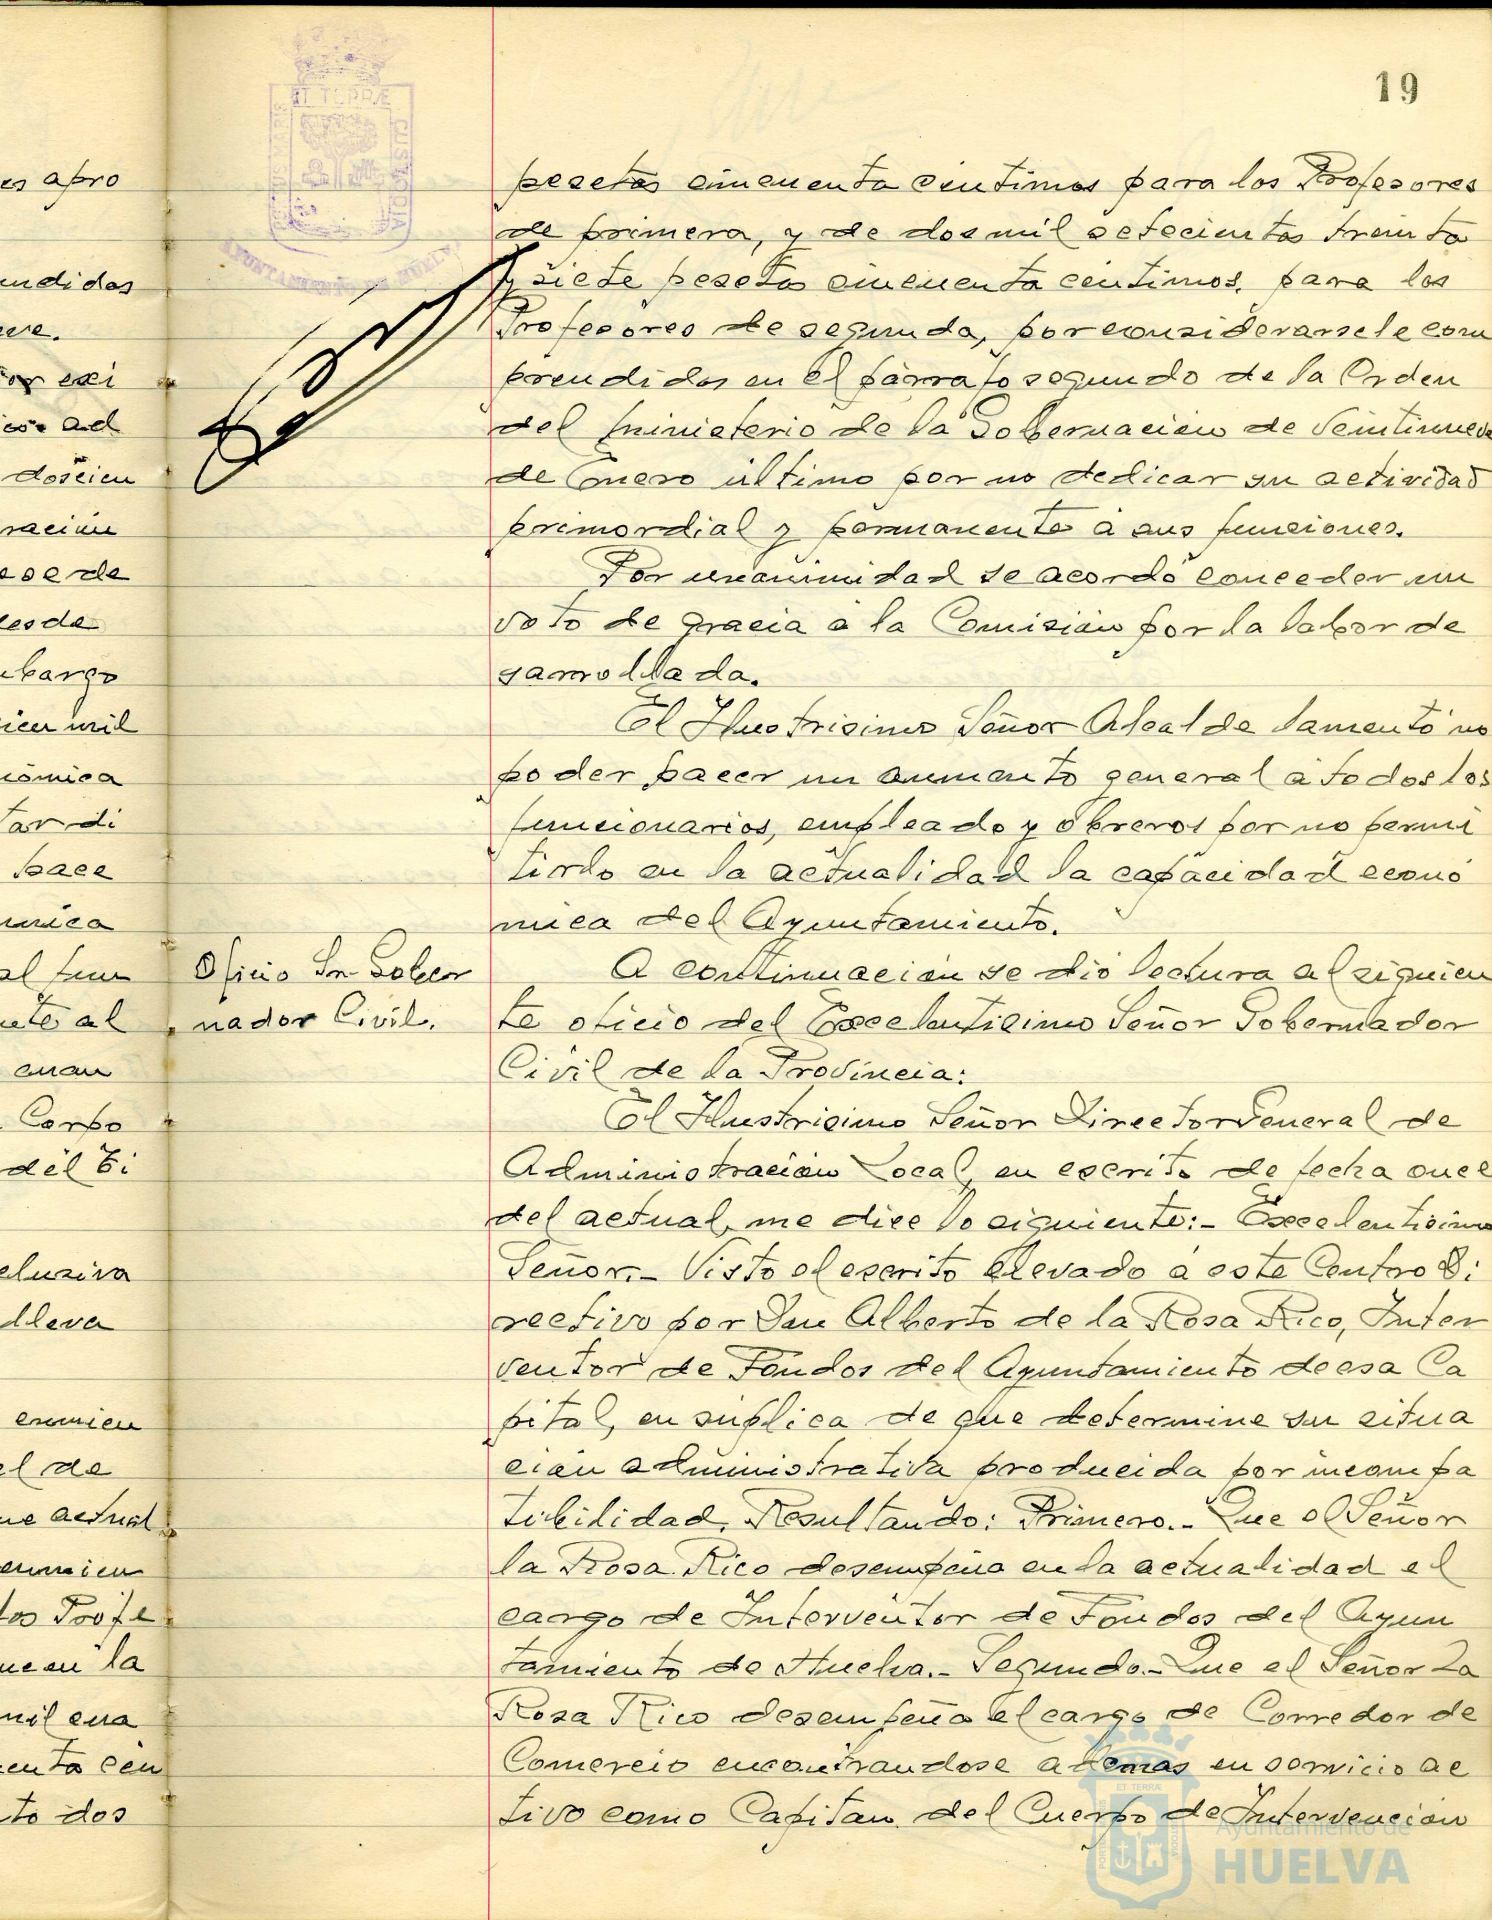 19
pesetas cincuenta centimos para los Profesores
de primera, y de dos mil setecientas treinta
y siete pesetas cincuenta centimos, para los
Profesores de segunda, por considerarsele com
prendidos en el párrafo segundo de la Orden
del Ministerio de la Gobernación de Veintinueve
de Enero último por no dedicar su actividad
primordial y permanente á sus funciones.
Por unanimidad se acordó conceder un
voto de gracia á la Comisión por la labor de
sarrollada.
El Ilustrisimo Señor Alcalde lamentó no
poder hacer un aumento general á todos los
funcionarios, empleado y obreros por no permi
tirlo en la actualidad la capacidad econó
mica del Ayuntamiento.
Oficio Sr. Gober
nador Civil.
A continuación se dió lectura al siguien
te oficio del Excelentisimo Señor Gobernador
Civil de la Provincia:
El Ilustrisimo Señor Director General de
Administración Local, en escrito de fecha once
del actual, me dice lo siguiente:- Excelentisimo
Señor.- Visto el escrito elevado á este Centro Di
rectivo por Don Alberto de la Rosa Rico, Inter
ventor de Fondos del Ayuntamiento de esa Ca
pital, en súplica de que determine su situa
ción administrativa producida por incompa
tibilidad. Resultando: Primero.- Que el Señor
la Rosa Rico desempeña en la actualidad el
cargo de Interventor de Fondos del Ayun
tamiento de Huelva.- Segundo.- Que el Señor La
Rosa Rico desempeña el cargo de Corredor de
Comercio encontrandose ademas en servicio ac
tivo como Capitan del Cuerpo de Intervención
es apro
undidos
exi
ad
doscien
ración
ese de
desde
bargo
cien mil
nómica
tar di
hace
al fun
al
cuan
Corpo
del Ti
clusiva
lleva
el de
ue actual
los Profe
ue en la
mil cua
enta cén
to dos
ET TERRÆ
CUSTODIA
AYUNTAMIENTO DE HUELVA
Ayuntamiento de
HUELVA